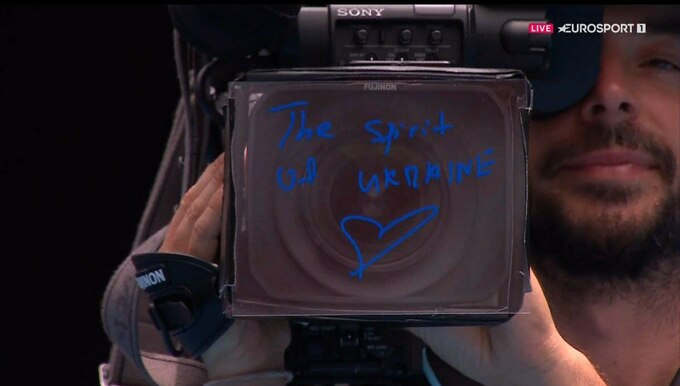 SONY
LIVE EUROSPORT 1
FUJINON
The spirit
UA UKRAINE
FUJINON